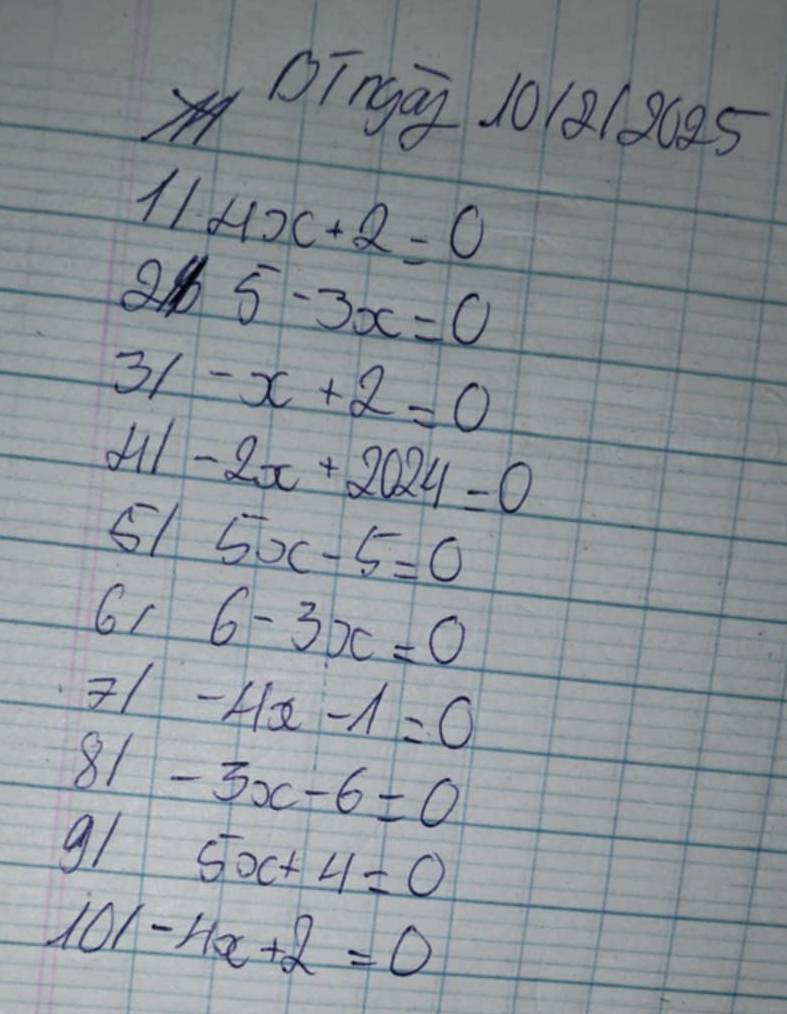 BT ngày 10/2/2025
1/ 4x + 2 = 0
2/ 5 - 3x = 0
3/ -x + 2 = 0
4/ -2x + 2024 = 0
5/ 5x - 5 = 0
6/ 6 - 3x = 0
7/ -4x - 1 = 0
8/ -3x - 6 = 0
9/ 5x + 4 = 0
10/ -4x + 2 = 0